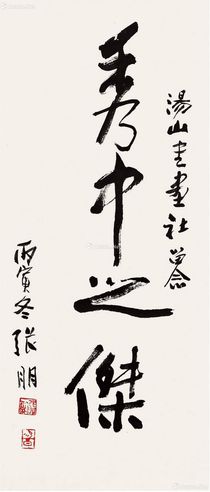 湯山書畫社留念
秀中之傑
丙寅冬張朋